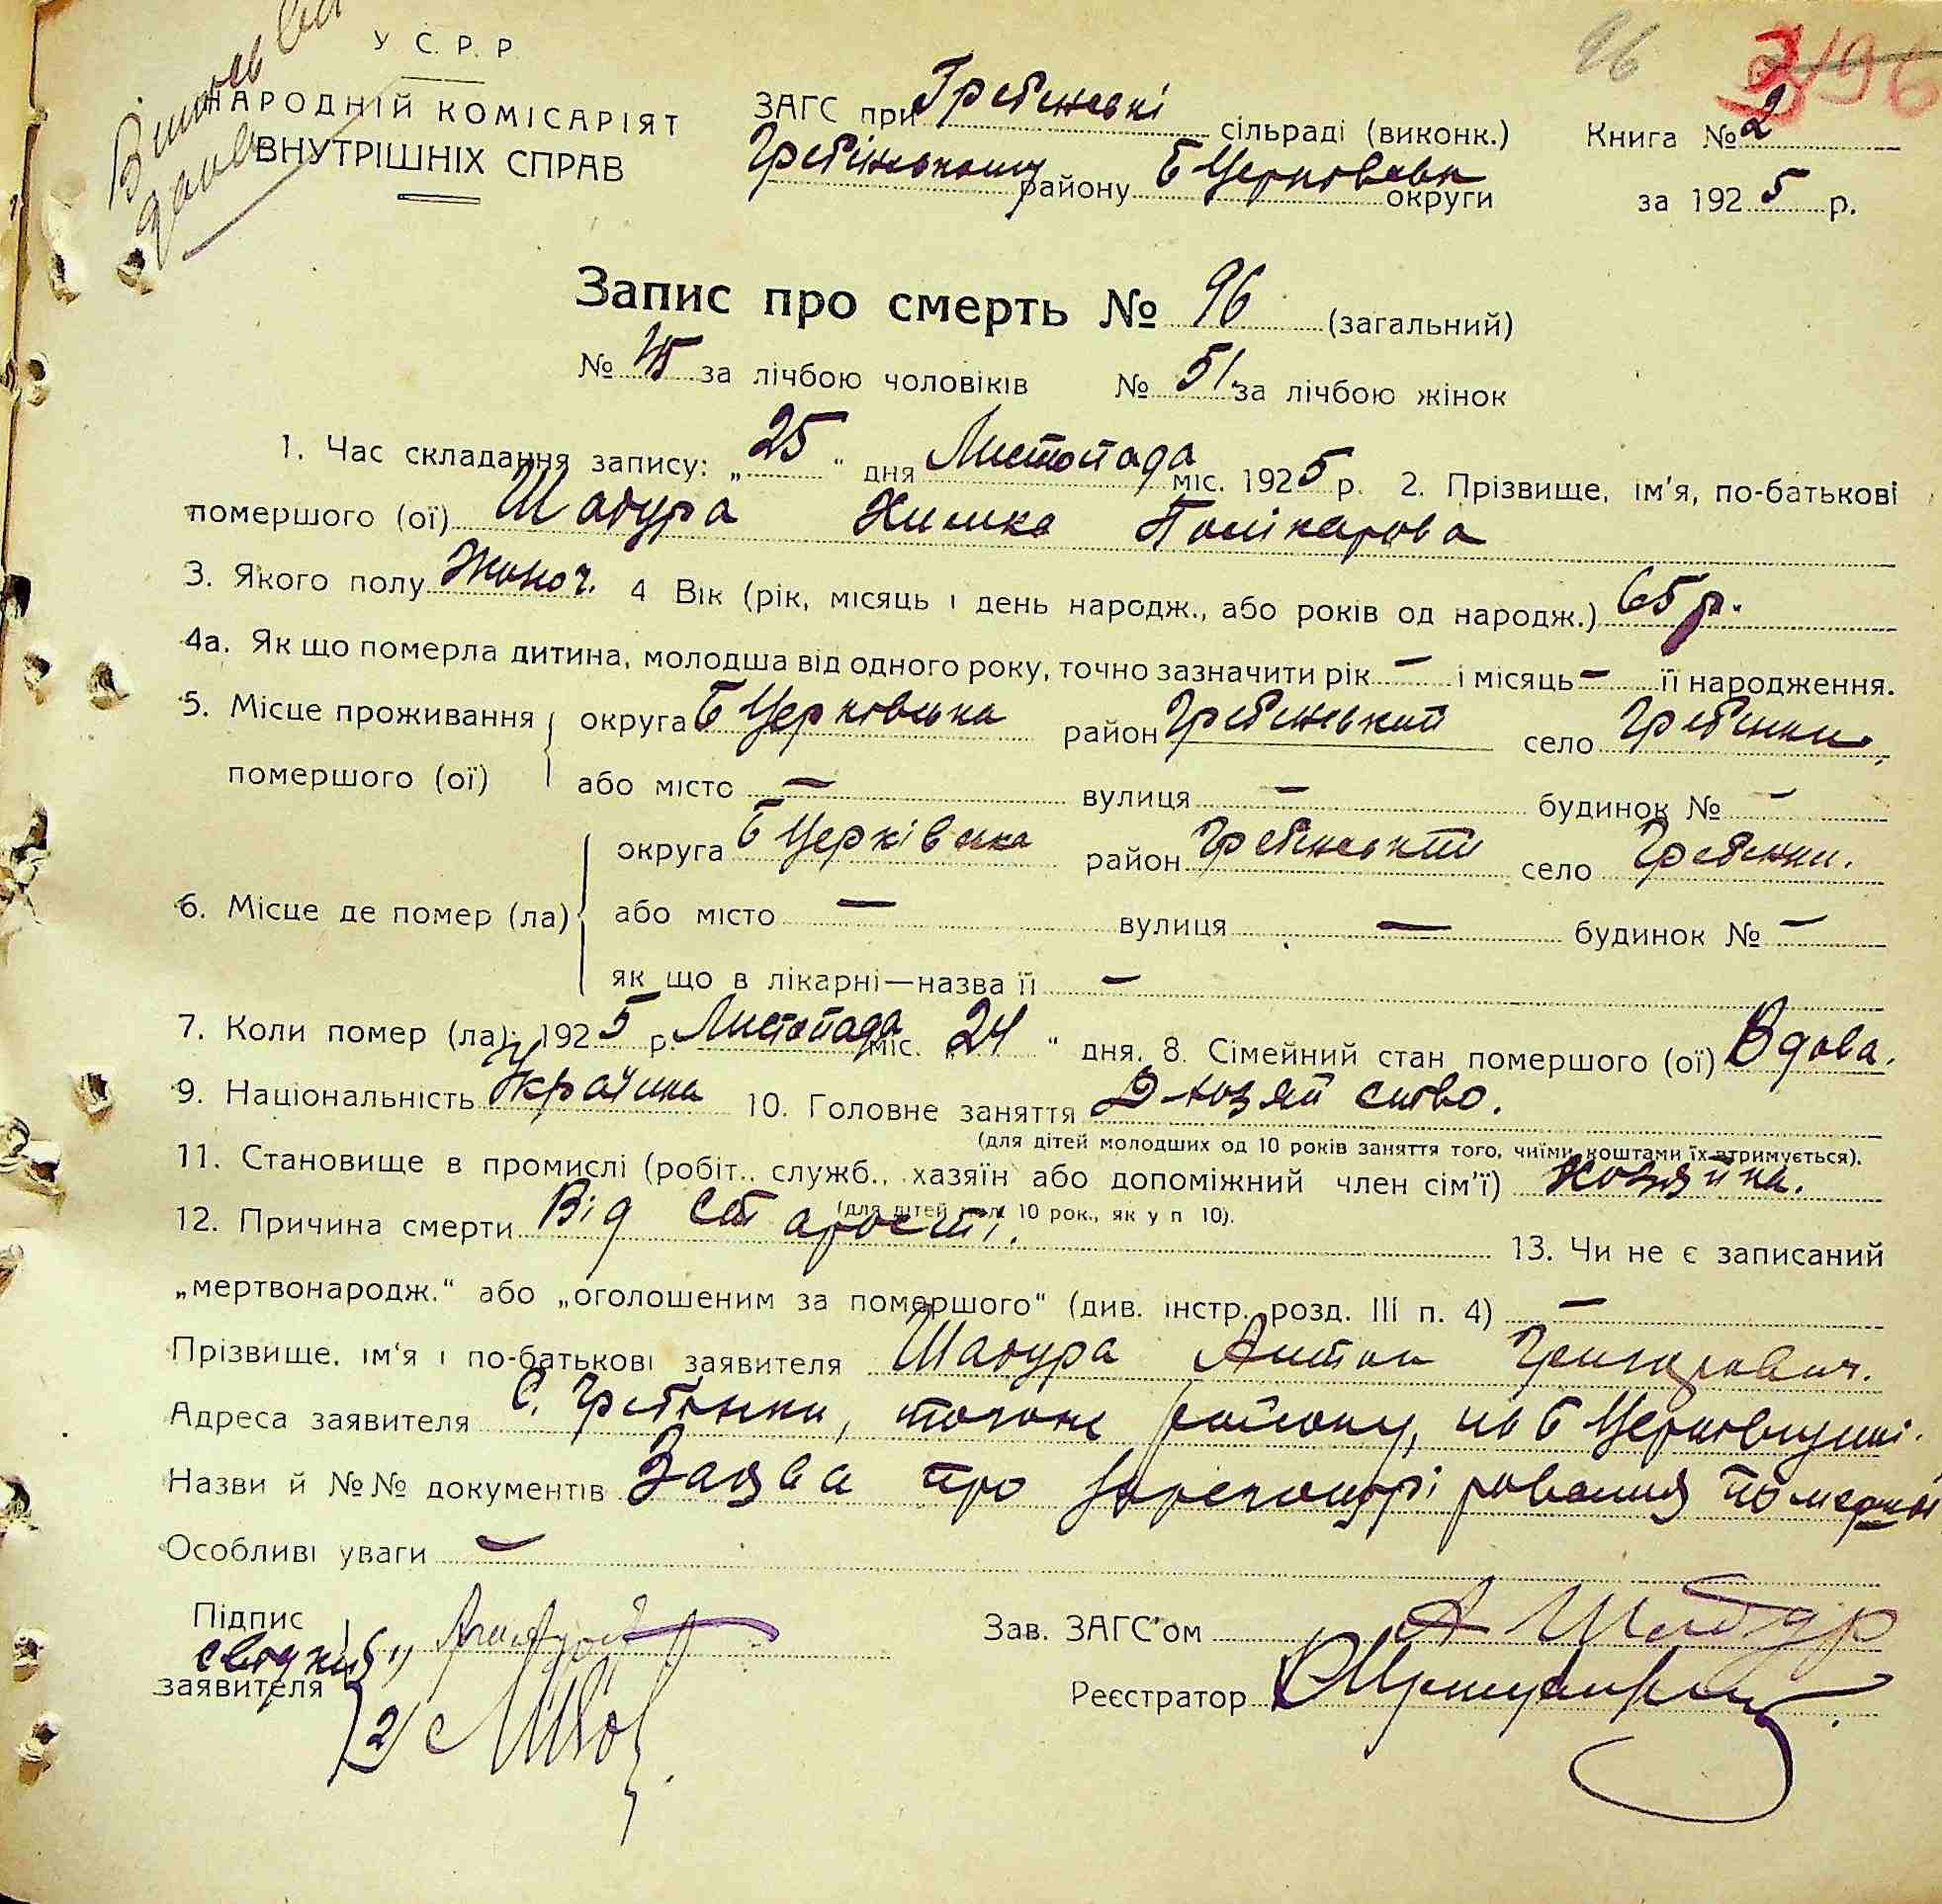 У С. Р. Р.
96
НАРОДНІЙ КОМІСАРІЯТ
ВНУТРІШНІХ СПРАВ
ЗАГС при Гребенські сільраді (виконк.) Книга № 2
Гребінському району Б Церковськ округи за 1925 р.
Запис про смерть № 96 (загальний)
№ 45 за лічбою чоловіків № 51 за лічбою жінок
1. Час складання запису: „25“ дня Листопада міс. 1925 р. 2. Прізвище, ім'я, по-батькові
помершого (ої) Шабура Химка Полікарова
3. Якого полу Жіноч. 4 Вік (рік, місяць і день народж., або років од народж.) 65 р.
4а. Як що померла дитина, молодша від одного року, точно зазначити рік — і місяць — її народження.
5. Місце проживання округа Б Церковська район Гребенський село Гребенки.
помершого (ої) або місто — вулиця — будинок № —
округа Б Церківська район Гребенський село Гребенки.
6. Місце де помер (ла) або місто — вулиця — будинок № —
як що в лікарні—назва її —
7. Коли помер (ла): 1925 р. Листопада міс. „24“ дня. 8. Сімейний стан помершого (ої) Вдова.
9. Національність Українка 10. Головне заняття Д-хозяйство.
(для дітей молодших од 10 років заняття того, чиїми коштами їх втримується).
11. Становище в промислі (робіт., служб., хазяїн або допоміжний член сім'ї) Хозяйка.
(для дітей мол. 10 рок., як у п 10).
12. Причина смерти Від старости. 13. Чи не є записаний
„мертвонародж.“ або „оголошеним за помершого“ (див. інстр. розд. III п. 4) —
Прізвище, ім'я і по-батькові заявителя Шабура Антон Григорович.
Адреса заявителя С. Гребінки, того ж району, на Б Церковщині.
Назви й №№ документів Заява про зарегестріровання
Особливі уваги —
Підпис
свідки 1)
заявителя 2)
Зав. ЗАГС'ом А Шабур
Реєстратор